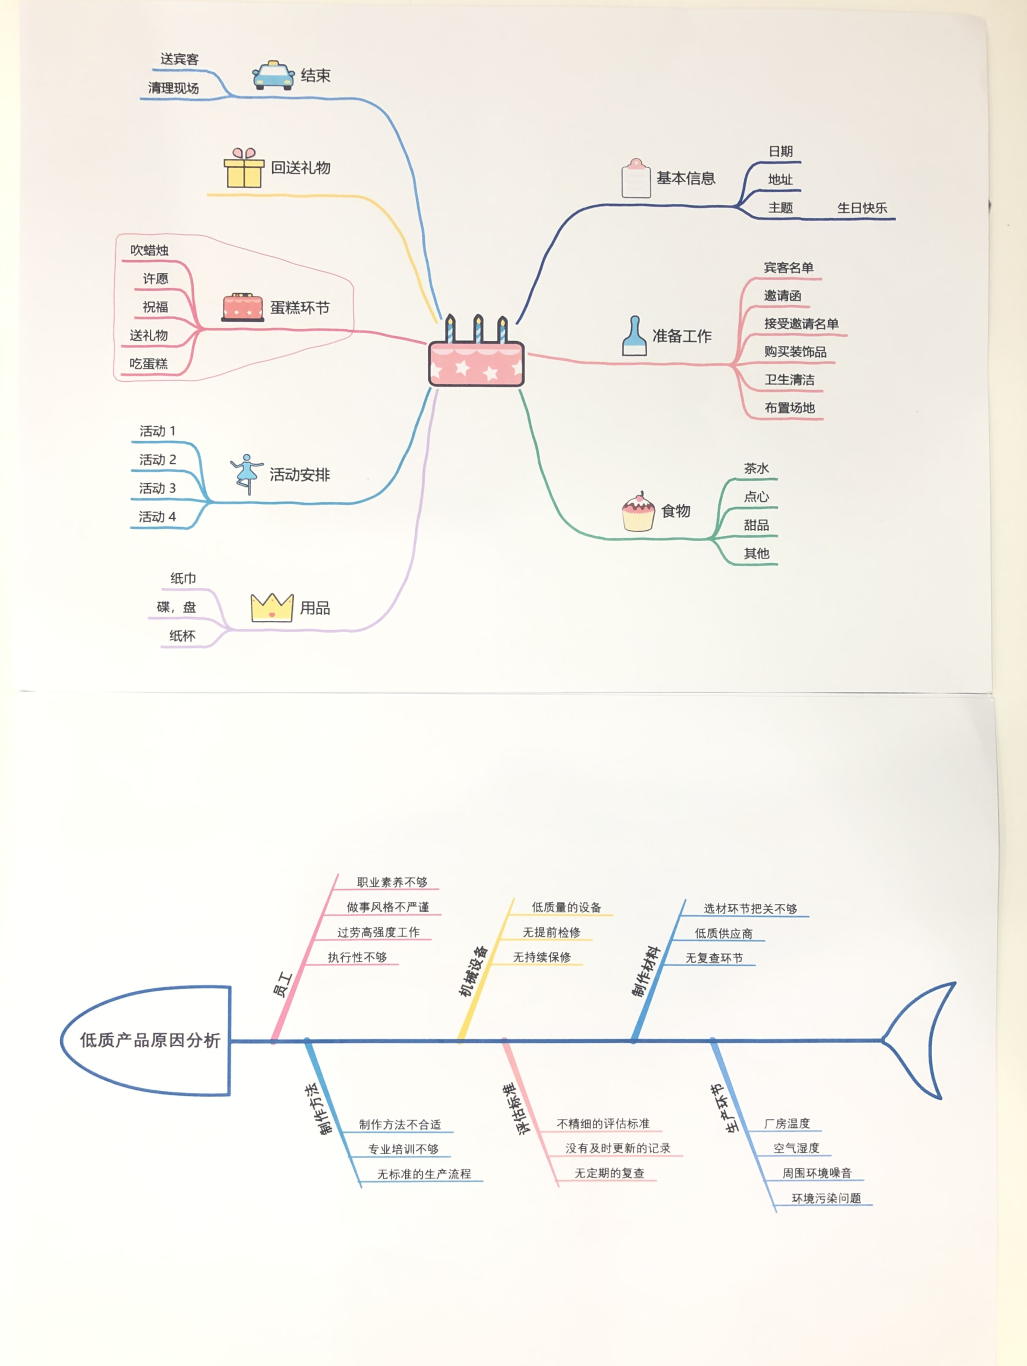 送宾客
清理现场
结束
回送礼物
吹蜡烛
许愿
祝福
送礼物
吃蛋糕
蛋糕环节
活动 1
活动 2
活动 3
活动 4
活动安排
纸巾
碟，盘
纸杯
用品
基本信息
日期
地址
主题 生日快乐
准备工作
宾客名单
邀请函
接受邀请名单
购买装饰品
卫生清洁
布置场地
食物
茶水
点心
甜品
其他
低质产品原因分析
员工
职业素养不够
做事风格不严谨
过劳高强度工作
执行性不够
机械设备
低质量的设备
无提前检修
无持续保修
制作材料
选材环节把关不够
低质供应商
无复查环节
制作方法
制作方法不合适
专业培训不够
无标准的生产流程
评估标准
不精细的评估标准
没有及时更新的记录
无定期的复查
生产环节
厂房温度
空气湿度
周围环境噪音
环境污染问题